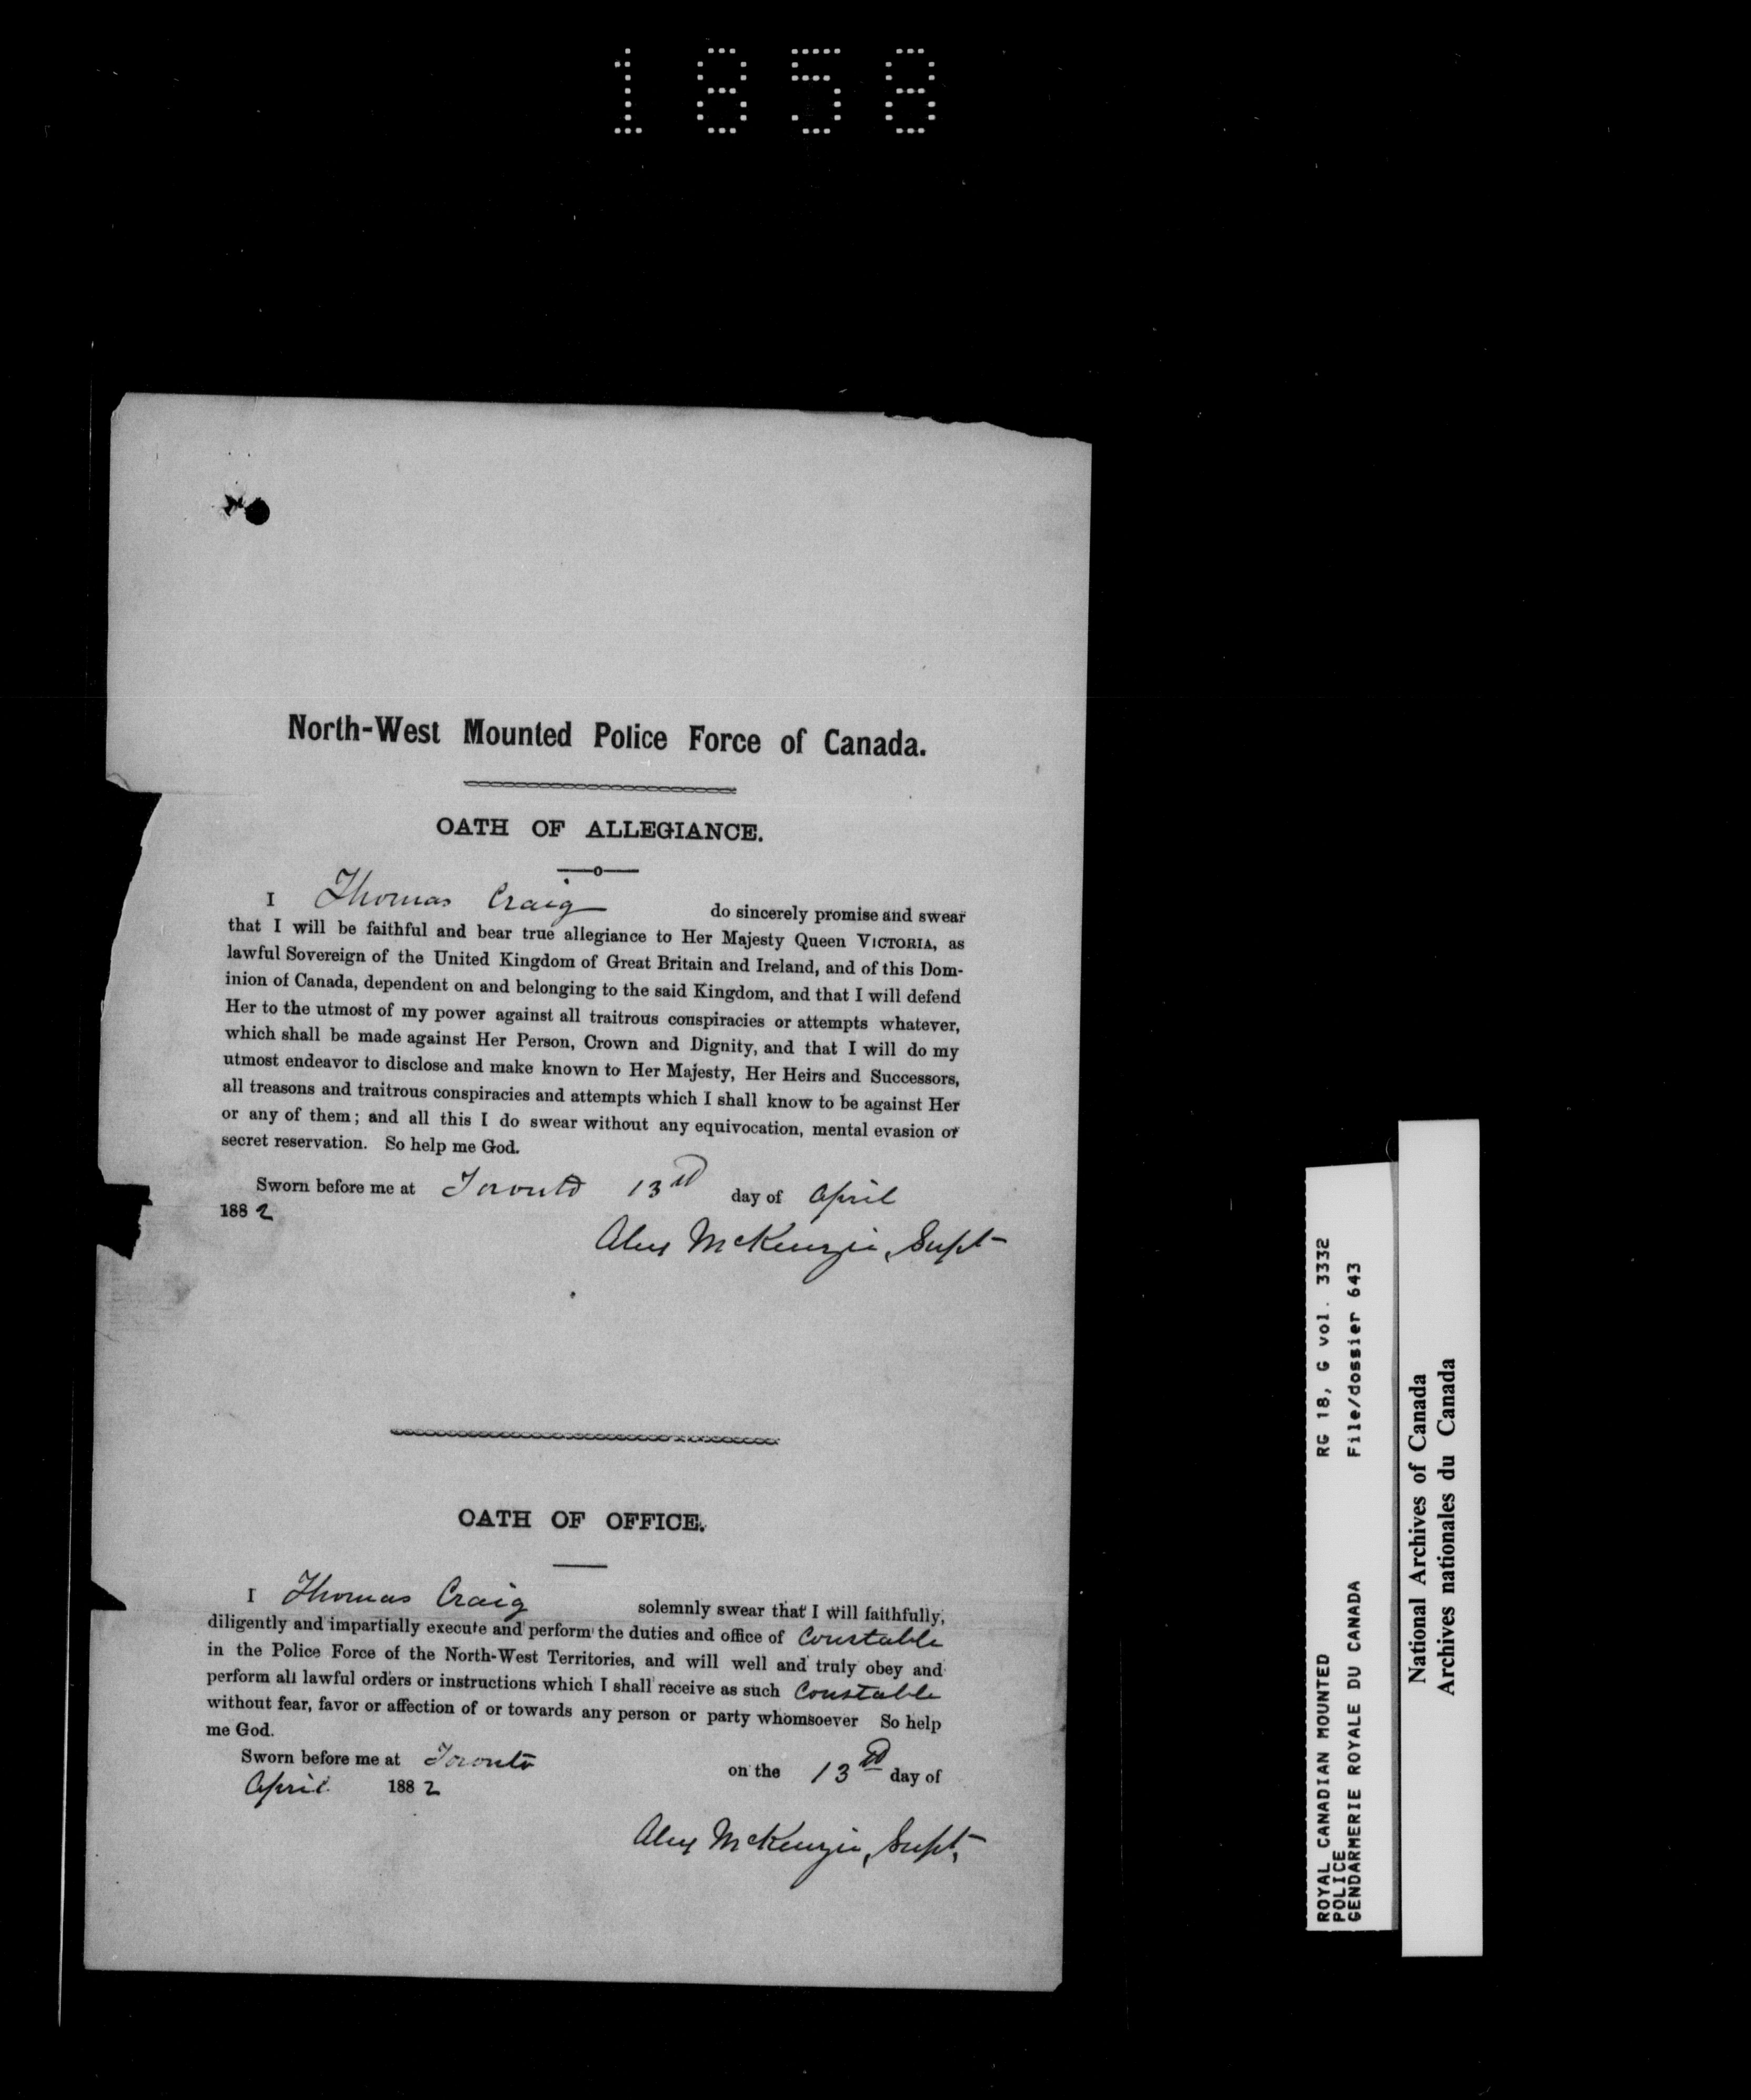 1858
North-West Mounted Police Force of Canada.
OATH OF ALLEGIANCE.
I Thomas Craig do sincerely promise and swear
that I will be faithful and bear true allegiance to Her Majesty Queen VICTORIA, as
lawful Sovereign of the United Kingdom of Great Britain and Ireland, and of this Dom-
inion of Canada, dependent on and belonging to the said Kingdom, and that I will defend
Her to the utmost of my power against all traitrous conspiracies or attempts whatever,
which shall be made against Her Person, Crown and Dignity, and that I will do my
utmost endeavor to disclose and make known to Her Majesty, Her Heirs and Successors,
all treasons and traitrous conspiracies and attempts which I shall know to be against Her
or any of them; and all this I do swear without any equivocation, mental evasion or
secret reservation. So help me God.
Sworn before me at Toronto 13rd day of April
1882
Alex McKenzie, Supt
OATH OF OFFICE.
I Thomas Craig solemnly swear that I will faithfully,
diligently and impartially execute and perform the duties and office of Constable
in the Police Force of the North-West Territories, and will well and truly obey and
perform all lawful orders or instructions which I shall receive as such Constable
without fear, favor or affection of or towards any person or party whomsoever So help
me God.
Sworn before me at Toronto on the 13rd day of
April 1882
Alex McKenzie, Supt,
ROYAL CANADIAN MOUNTED RG 18, G vol. 3332
POLICE
GENDARMERIE ROYALE DU CANADA File/dossier 643
National Archives of Canada
Archives nationales du Canada